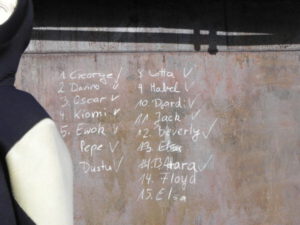 1. George ✓
2. Danno ✓
3. Oscar ✓
4. Kiomi ✓
5. Ewok ✓
Pepe ✓
Dustu ✓
8. Lotta ✓
9. Mabel ✓
10. Djordi ✓
11. Jack ✓
12. beverly ✓
13. Elsa
14. Hara ✓
14. Floyd
15. Elsa